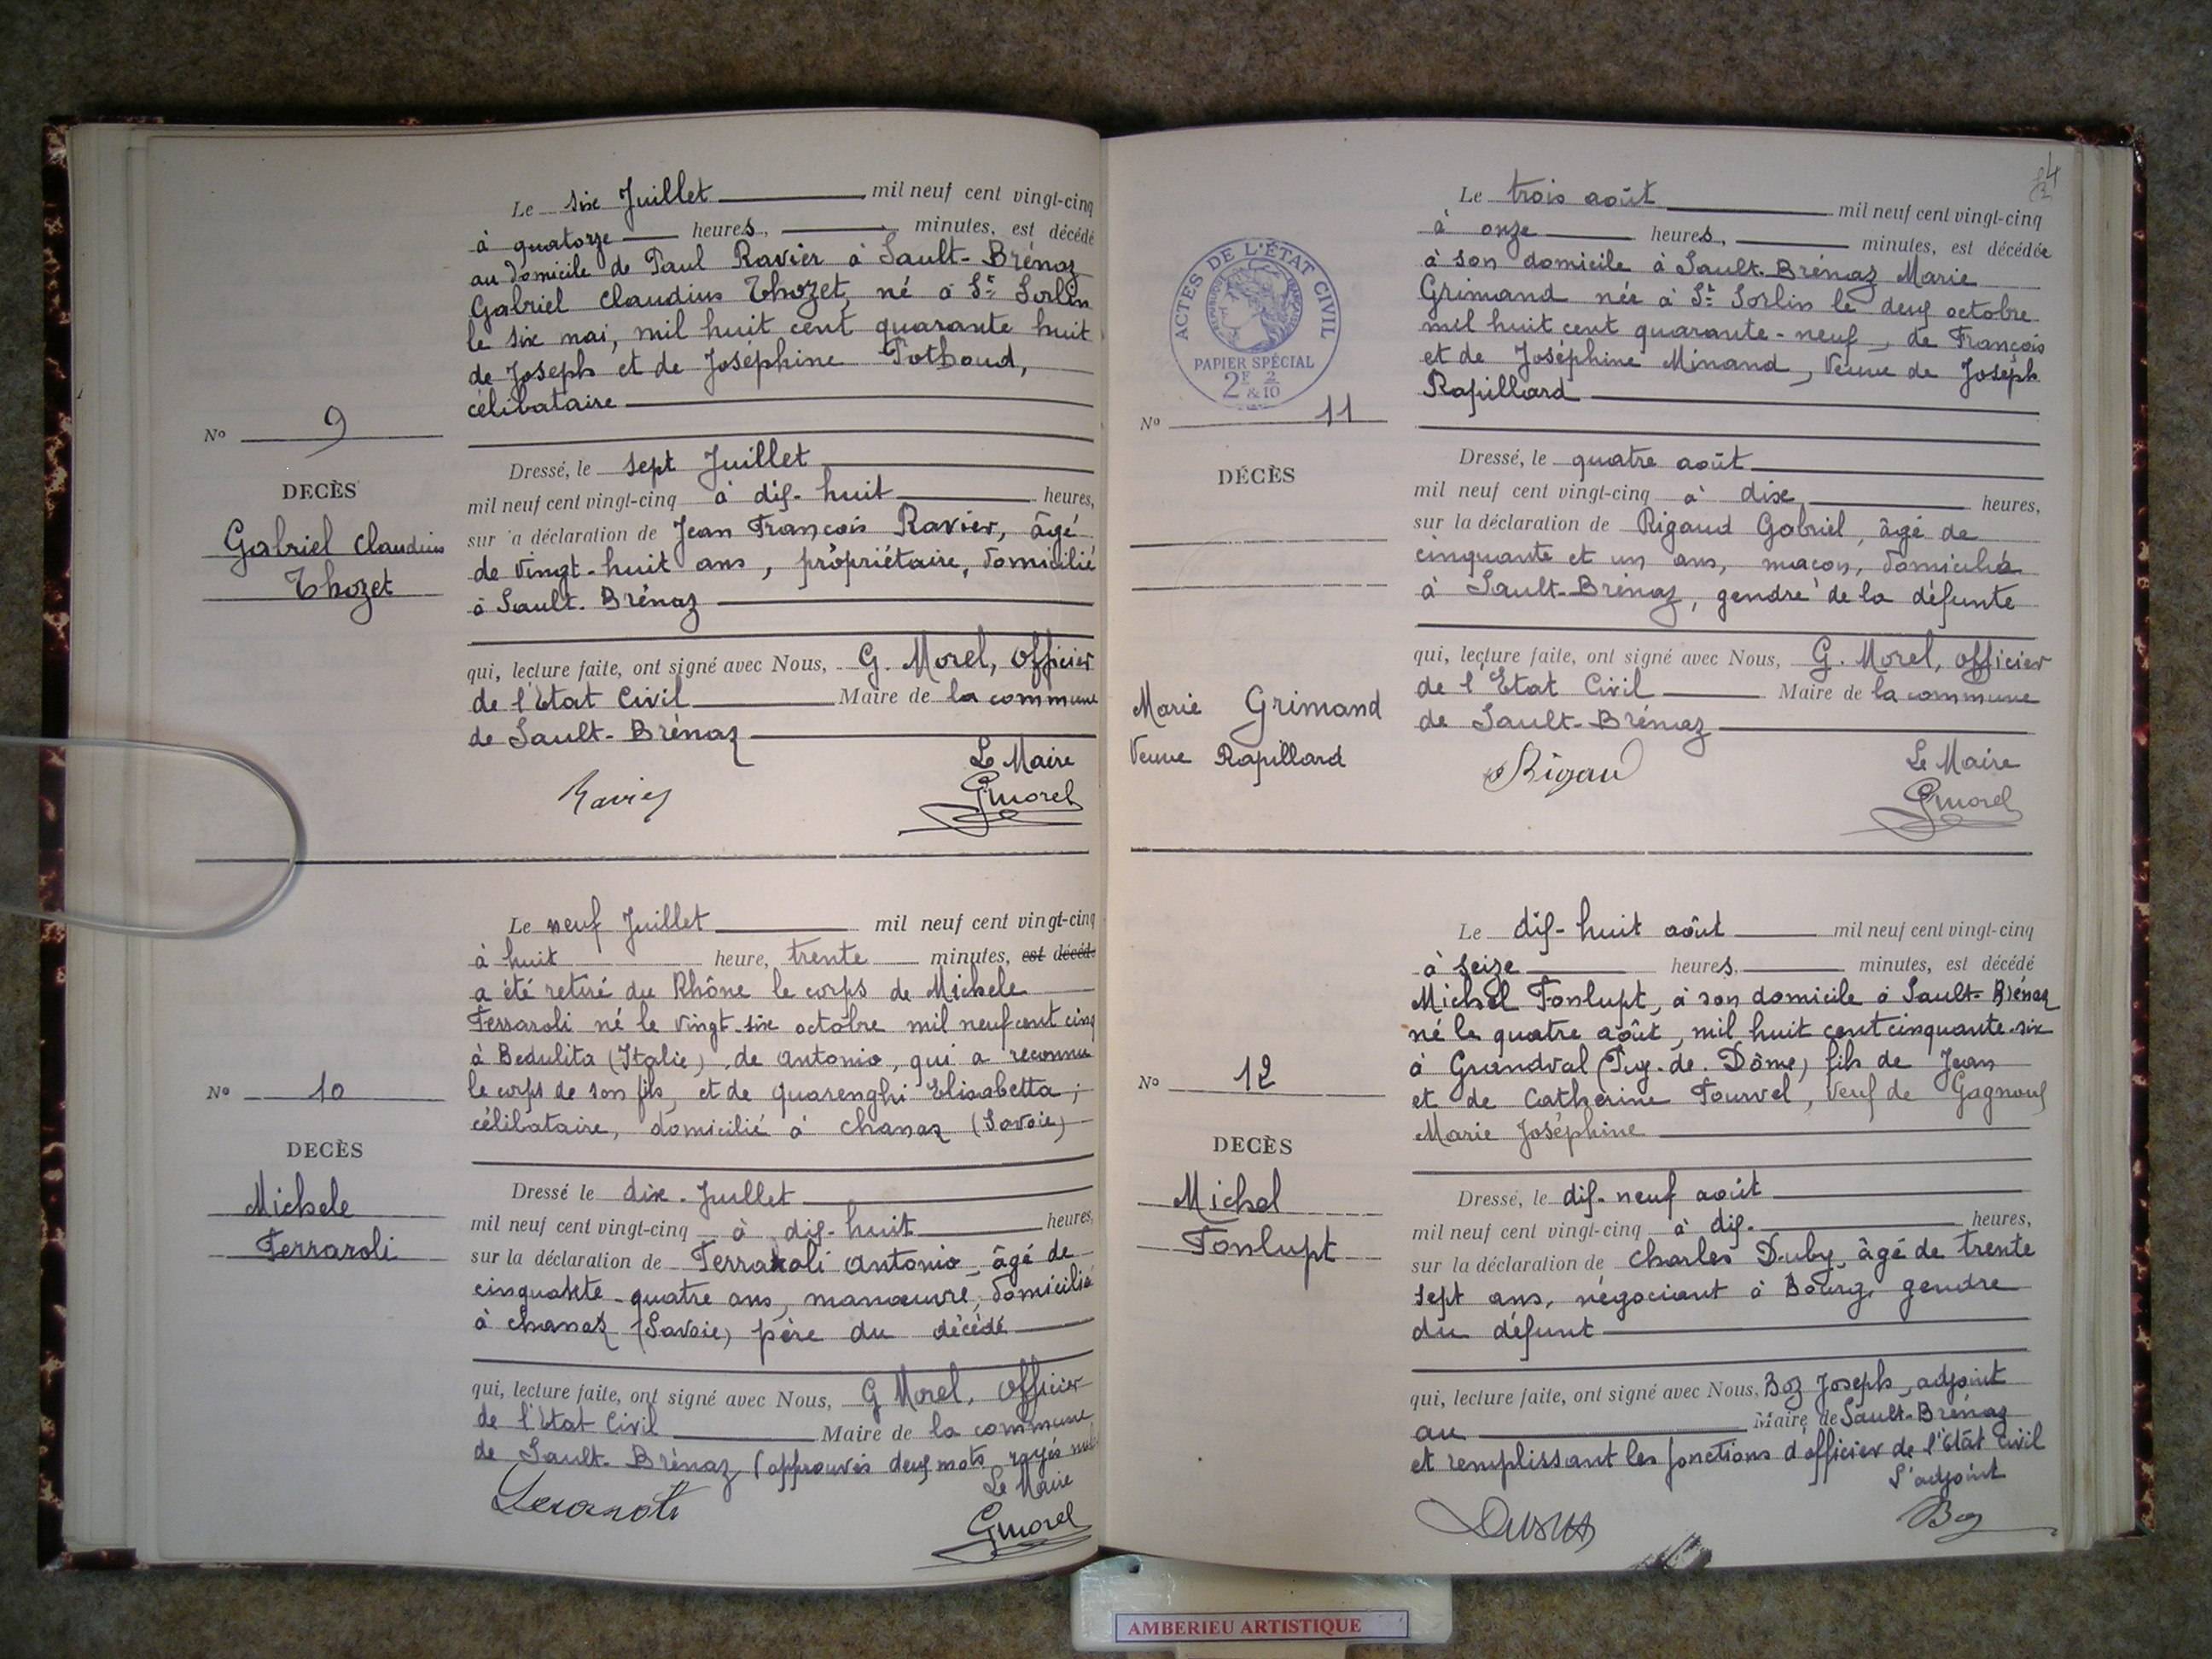 Le six Juillet mil neuf cent vingt-cinq
à quatorze heures, minutes, est décédé
au domicile de Paul Ravier à Sault-Brénaz
Gabriel Claudius Thozet, né à St Sorlin
le six mai, mil huit cent quarante huit
de Joseph et de Joséphine Pothoud,
célibataire
No 9
Dressé, le sept Juillet
mil neuf cent vingt-cinq à dix-huit heures,
DECÈS
sur la déclaration de Jean François Ravier, âgé
Gabriel Claudius
Thozet
de vingt-huit ans, propriétaire, domicilié
à Sault-Brénaz
qui, lecture faite, ont signé avec Nous, G. Morel, Officier
de l'Etat Civil Maire de la commune
de Sault-Brénaz
Le Maire
Ravier
GMorel
Le neuf Juillet mil neuf cent vingt-cinq
à huit heure, trente minutes, est décéd.
a été retiré du Rhône le corps de Michele
Ferraroli né le vingt-six octobre mil neuf cent cinq
à Bedulita (Italie), de Antonio, qui a reconnu
le corps de son fils, et de Quarenghi Elisabetta;
célibataire, domicilié à Chanaz (Savoie)
No 10
DECÈS
Michele
Ferraroli
Dressé le dix-Juillet
mil neuf cent vingt-cinq à dix-huit heures,
sur la déclaration de Ferraroli Antonio, âgé de
cinquante-quatre ans, manœuvre, domicilié
à Chanaz (Savoie) père du décédé
qui, lecture faite, ont signé avec Nous, G Morel, Officier
de l'Etat Civil Maire de la commune
de Sault-Brénaz (approuvés deux mots rayés nuls
Le Maire
GMorel
Le trois août mil neuf cent vingt-cinq
à onze heures, minutes, est décédée
à son domicile à Sault-Brénaz Marie
Grimand née à St Sorlin le deux octobre
mil huit cent quarante-neuf, de François
et de Joséphine Minand, Veuve de Joseph
Rapillard
ACTES DE L'ÉTAT CIVIL
PAPIER SPÉCIAL
2F 2
& 10
No 11
DÉCÈS
Dressé, le quatre août
mil neuf cent vingt-cinq à dix heures,
sur la déclaration de Rigaud Gabriel, âgé de
cinquante et un ans, maçon, domicilié
à Sault-Brénaz, gendre de la défunte
qui, lecture faite, ont signé avec Nous, G. Morel, officier
de l'Etat Civil Maire de la commune
de Sault-Brénaz
Marie Grimand
Veuve Rapillard
Le Maire
Rigau
GMorel
Le dix-huit août mil neuf cent vingt-cinq
à seize heures, minutes, est décédé
Michel Fonlupt, à son domicile à Sault-Brénaz
né le quatre août, mil huit cent cinquante-six
à Grandval (Puy-de-Dôme) fils de Jean
et de Catherine Tourvel, veuf de Gagnoux
Marie Joséphine
No 12
DECÈS
Michel
Fonlupt
Dressé, le dix-neuf août
mil neuf cent vingt-cinq à dix- heures,
sur la déclaration de Charles Duby, âgé de trente
sept ans, négociant à Bourg, gendre
du défunt
qui, lecture faite, ont signé avec Nous, Boz Joseph, adjoint
au Maire de Sault-Brénaz
et remplissant les fonctions d'officier de l'Etat Civil
L'adjoint
Boz
AMBERIEU ARTISTIQUE